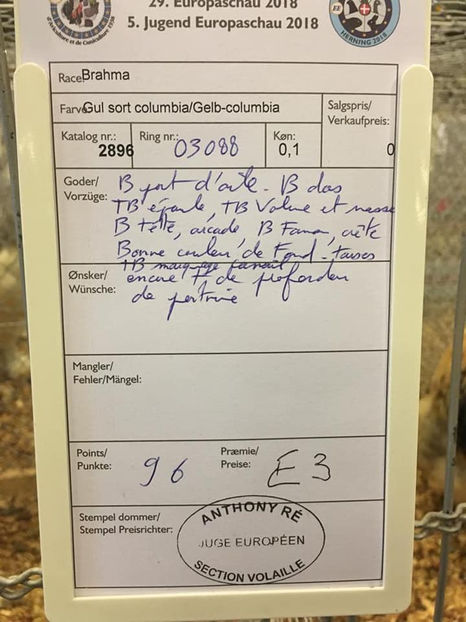 29. Europaschau 2018
5. Jugend Europaschau 2018
d'aviculture et de Cuniculture 1938
EE
HERNING 2018
Race Brahma
Farve Gul sort columbia/Gelb-columbia
Salgspris/
Verkaufpreis:
0
Katalog nr.:
2896
Ring nr.:
03088
Køn:
0,1
Goder/
Vorzüge:
B port d'aile - B dos
TB épaule, TB Volume et masse
B tête, arcade, B Fanon, crête
Bonne couleur de Fond - tarses
TB
Ønsker/
Wünsche:
encore + de profondeur
de poitrine
Mangler/
Fehler/Mängel:
Points/
Punkte:
96
Præmie/
Preise:
E3
Stempel dommer/
Stempel Preisrichter:
ANTHONY RÉ
JUGE EUROPÉEN
SECTION VOLAILLE